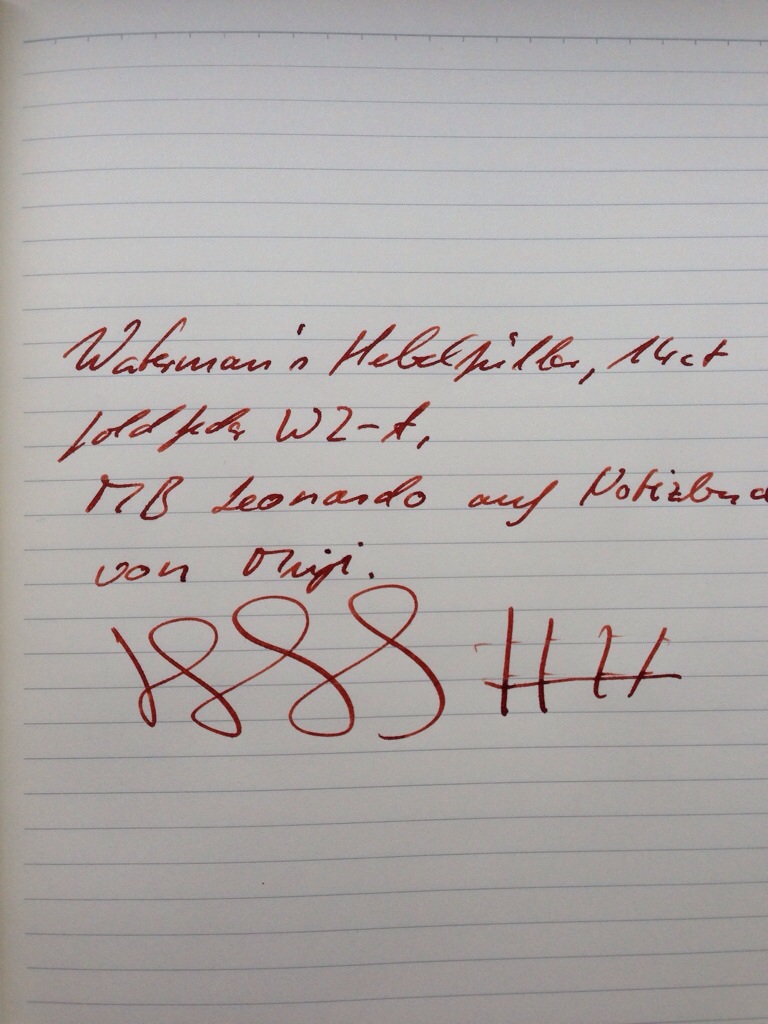 Waterman's Hebelfüller, 14ct
Goldfeder W2-A,
MB Leonardo auf Notizbuc
von